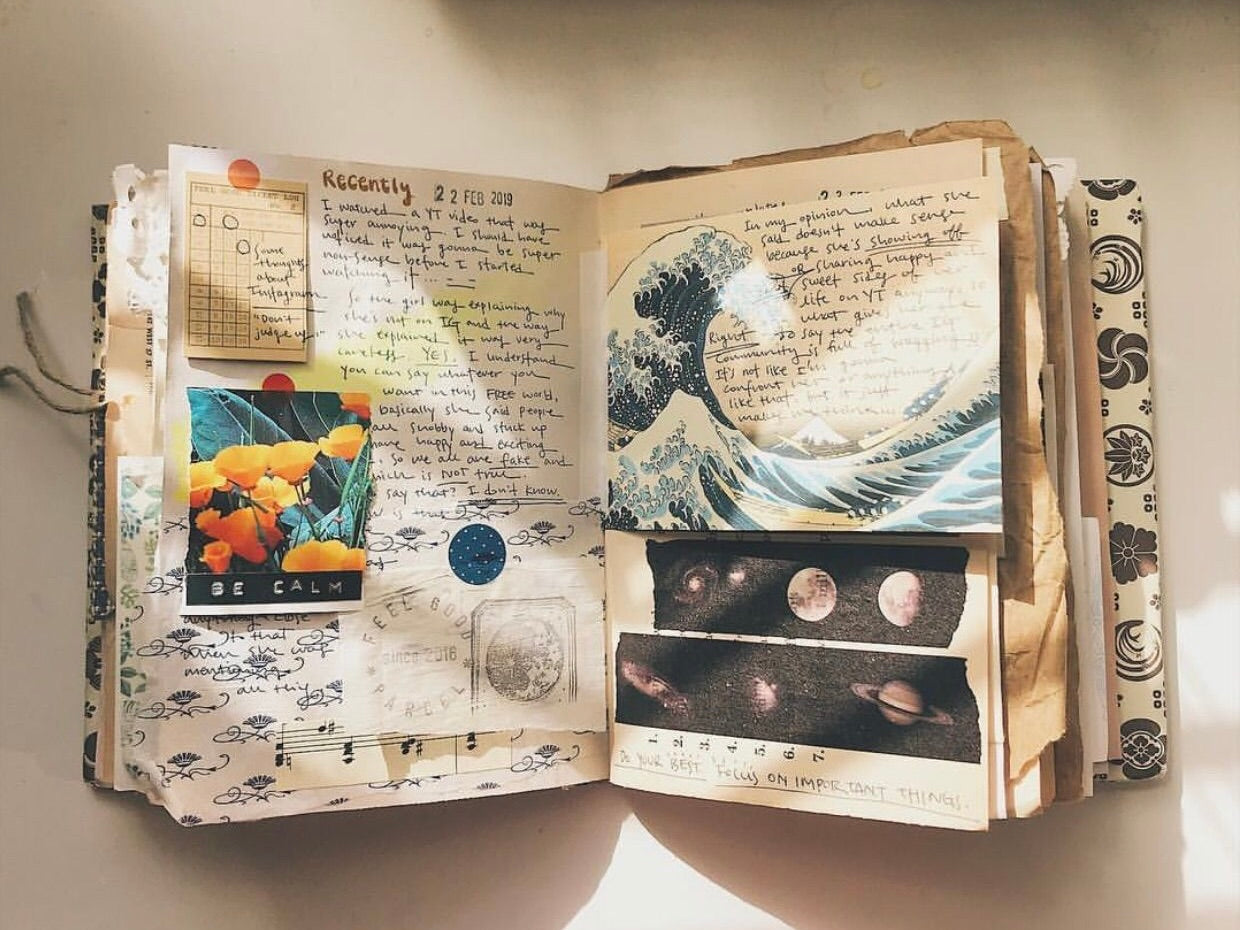 Recently 22 FEB 2019
I watched a YT video that was
super annoying. I should have
noticed it was gonna be super
non-sense before I started
watching it...
So the girl was explaining why
she's not on IG and the way
she explained it was very
careless. YES. I understand
you can say whatever you
want in this FREE world,
basically she said people
are snobby and stuck up
have happy and exciting
So we all are fake and
which is NOT true.
say that? I don't know.
is that
Some
thoughts
about
Instagram
"Don't
judge us"
BE CALM
anything close
to that
when she was
mentioning
all this
FEEL GOOD
since 2016
PARCEL
22 FEB
In my opinion, what she
said doesn't make sense
because she's showing off
OR sharing happy
sweet sides of her
life on YT anyways so
what gives her
Right to say the entire IG
community is full of
It's not like I'm gonna
confront her or anything
like that but it just
1. 2. 3. 4. 5. 6. 7.
DO YOUR BEST Focus ON IMPORTANT THINGS.